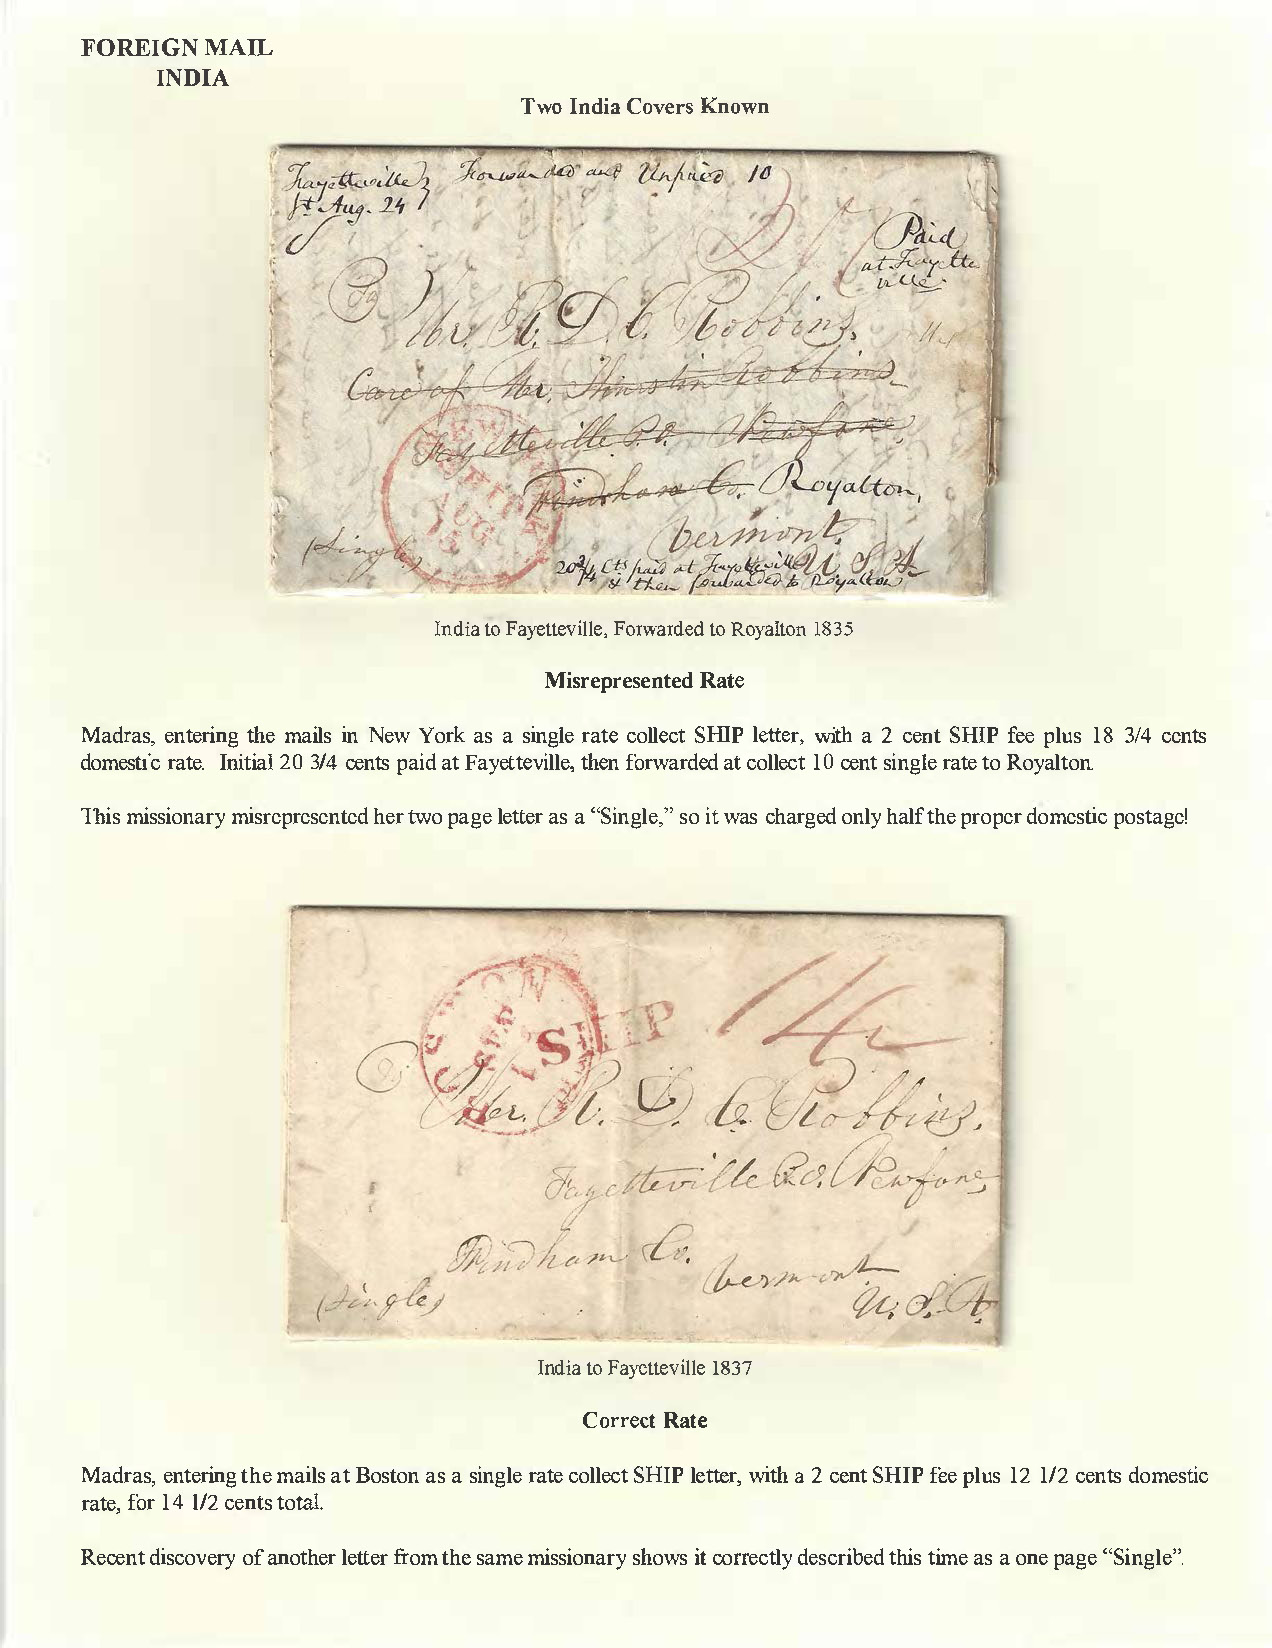 FOREIGN MAIL
INDIA
Two India Covers Known
Fayetteville Forwarded and Unpaid 10
Vt Aug. 24
Paid
at Fayette
ville
To
Mr. R. D. C. Robbins,
Care of Mr. Robbins
Fayetteville P.O. Newfane,
Windham Co. Royalton,
Vermont.
U. S. A
(Single)
20 3/4 Cts paid at Fayetteville
& then forwarded to Royalton
NEW
SHIP
AUG
15
India to Fayetteville, Forwarded to Royalton 1835
Misrepresented Rate
Madras, entering the mails in New York as a single rate collect SHIP letter, with a 2 cent SHIP fee plus 18 3/4 cents
domestic rate. Initial 20 3/4 cents paid at Fayetteville, then forwarded at collect 10 cent single rate to Royalton.
This missionary misrepresented her two page letter as a “Single,” so it was charged only half the proper domestic postage!
BOSTON
SEP
1
SHIP 14
Mr. R. D. C. Robbins,
Fayetteville P.O. Newfane,
Windham Co.
Vermont.
(Single)
U. S. A.
India to Fayetteville 1837
Correct Rate
Madras, entering the mails at Boston as a single rate collect SHIP letter, with a 2 cent SHIP fee plus 12 1/2 cents domestic
rate, for 14 1/2 cents total.
Recent discovery of another letter from the same missionary shows it correctly described this time as a one page “Single”.